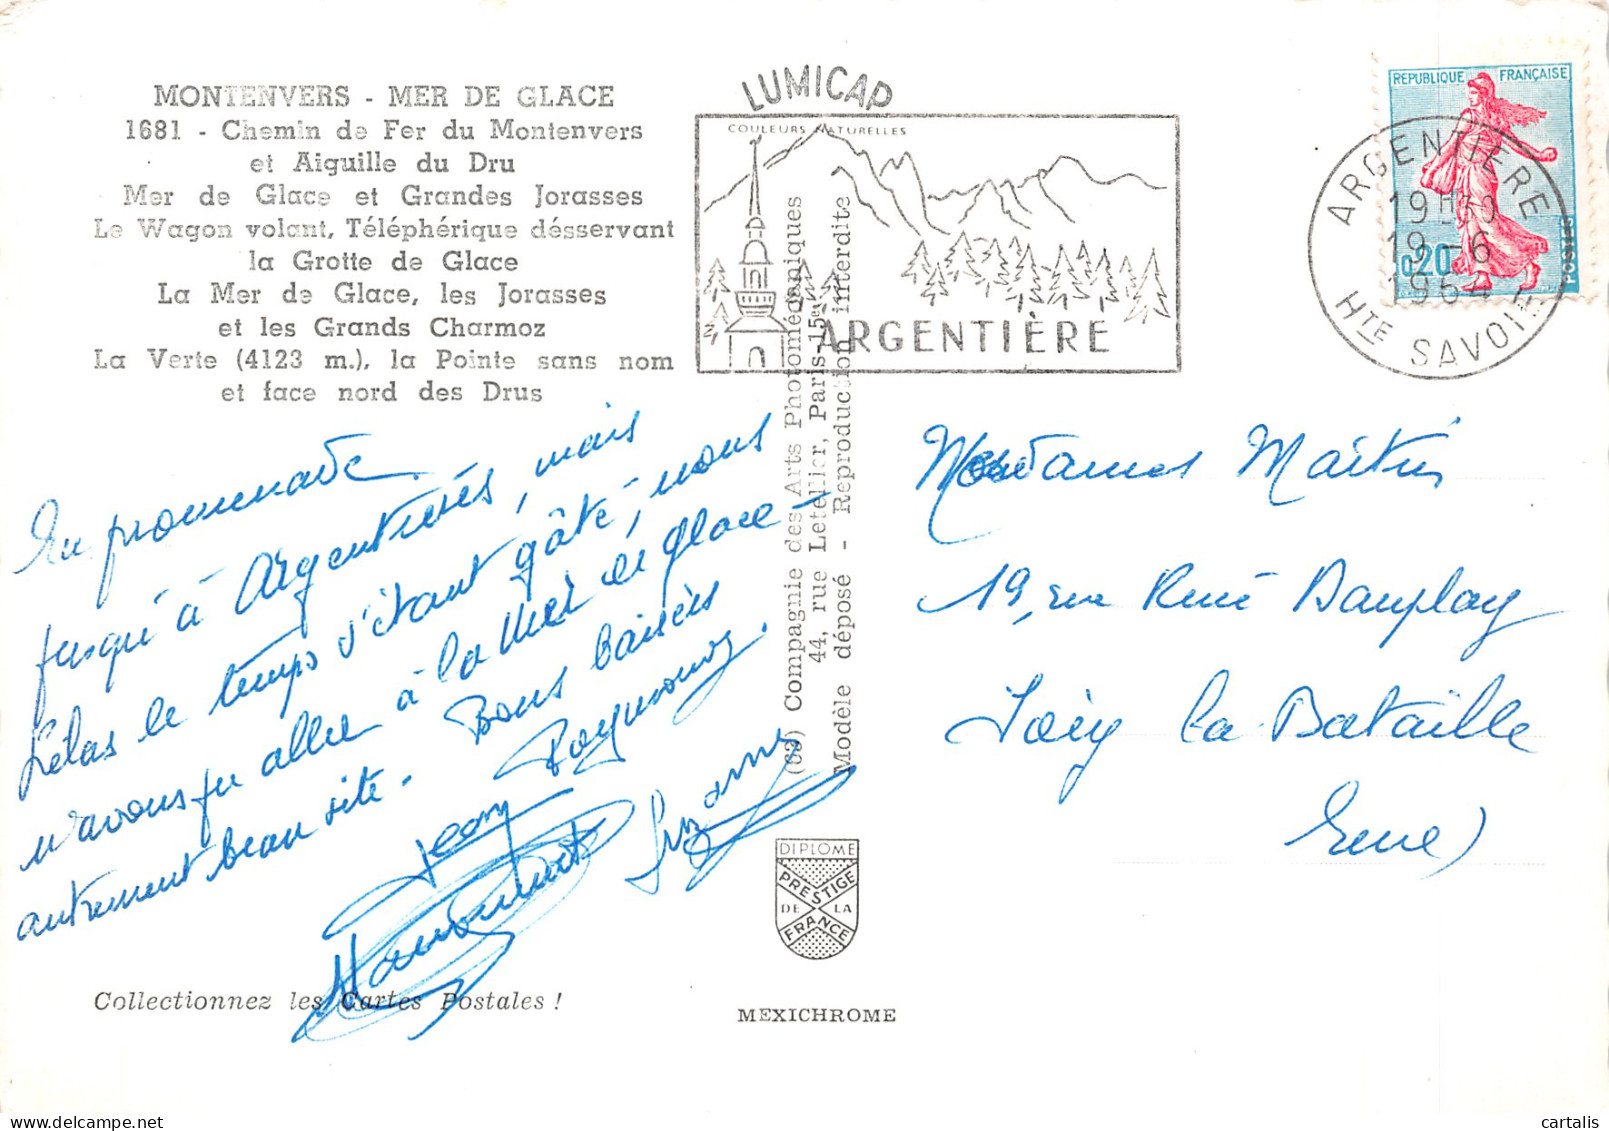 MONTENVERS - MER DE GLACE
1681 - Chemin de Fer du Montenvers
et Aiguille du Dru
Mer de Glace et Grandes Jorasses
Le Wagon volant, Téléphérique désservant
la Grotte de Glace
La Mer de Glace, les Jorasses
et les Grands Charmoz
La Verte (4123 m.), la Pointe sans nom
et face nord des Drus
LUMICAP
COULEURS NATURELLES
ARGENTIÈRE
REPUBLIQUE FRANÇAISE
0,20
POSTES
ARGENTIERE
19H30
19-6
1964
HTE SAVOIE
En promenade
jusqu'à Argentières, mais
hélas le temps s'étant gâté, nous
n'avons pu aller à la Mer de glace -
autrement beau site. Bons baisers
Raymonde.
Jean
Suzanne
Mesdames Maitri
19, rue René Dauplay
Ivry la Bataille
Eure)
(63) Compagnie des Arts Photomécaniques
44, rue Letellier, Paris-15e
Modèle déposé - Reproduction interdite
DIPLOME
PRESTIGE
DE LA
FRANCE
Collectionnez les Cartes Postales !
MEXICHROME
delcampe.net
cartalis